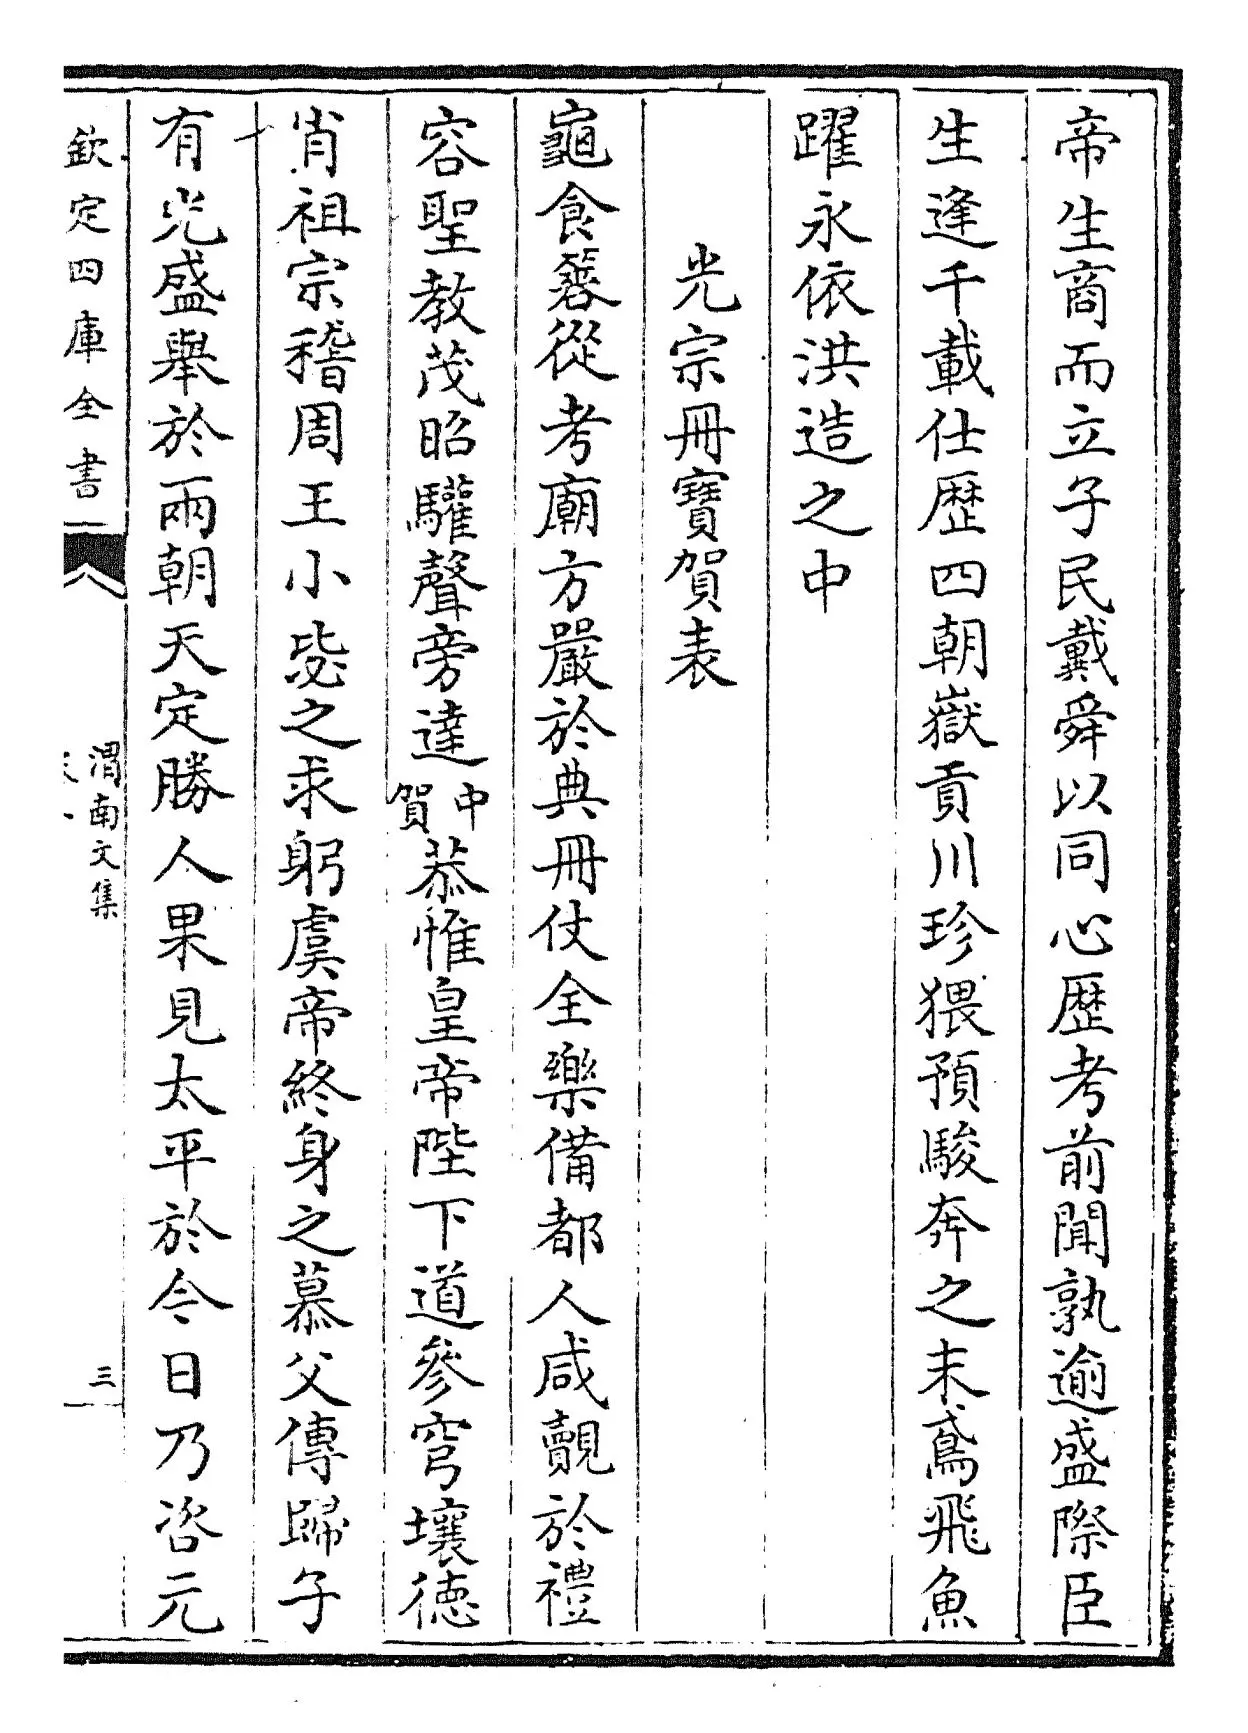 帝生商而立子民戴舜以同心歴考前聞孰逾盛際臣
生逢千載仕歴四朝嶽貢川珍猥預駿奔之末鳶飛魚
躍永依洪造之中
光宗冊寶賀表
龜食簭從考廟方嚴於典冊仗全樂備都人咸覿於禮
容聖教茂昭驩聲旁達中賀恭惟皇帝陛下道參穹壤徳
肖祖宗稽周王小毖之求躬虞帝終身之慕父傳歸子
有光盛舉於兩朝天定勝人果見太平於今日乃咨元
欽定四庫全書
渭南文集
三